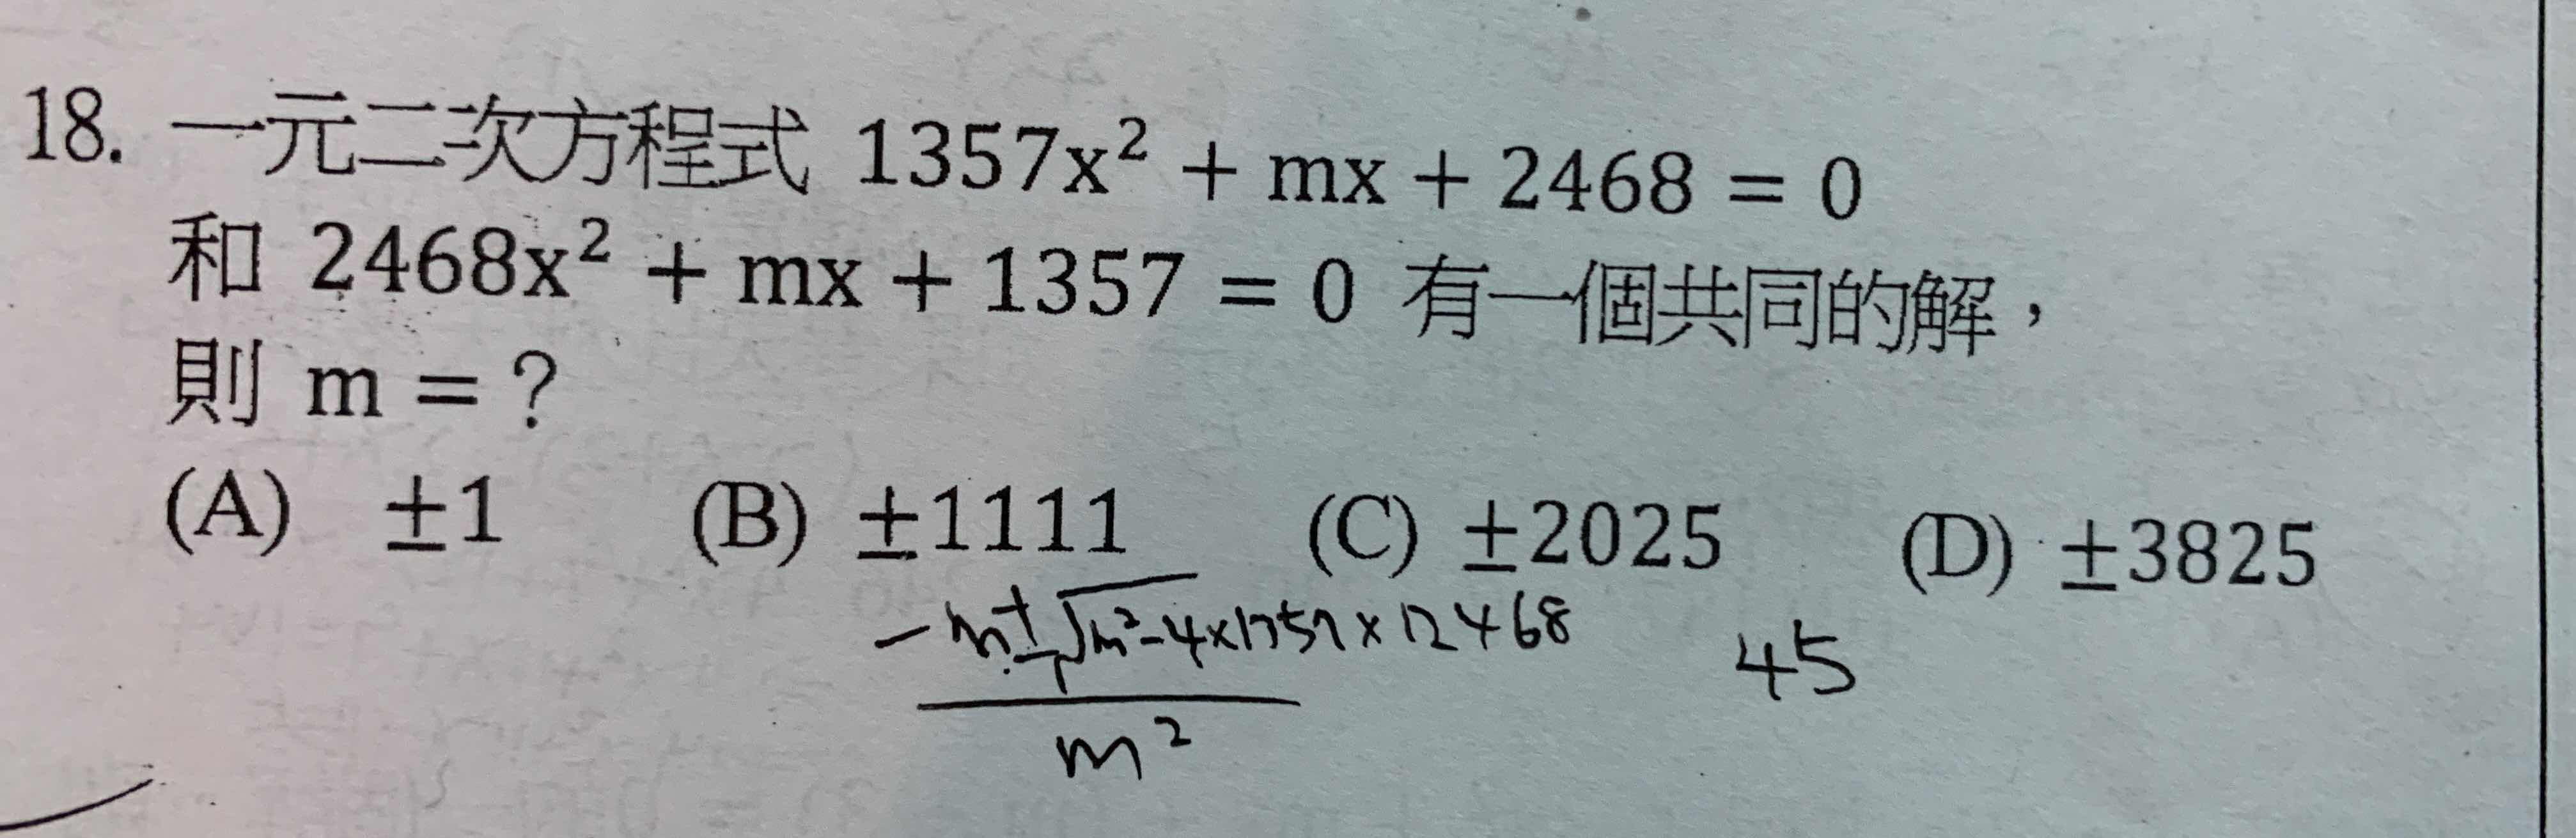 18. 一元二次方程式 1357x² + mx + 2468 = 0
和 2468x² + mx + 1357 = 0 有一個共同的解，
則 m = ?
(A) ±1 (B) ±1111 (C) ±2025 (D) ±3825
-m±√m²-4×1357×12468
45
m²